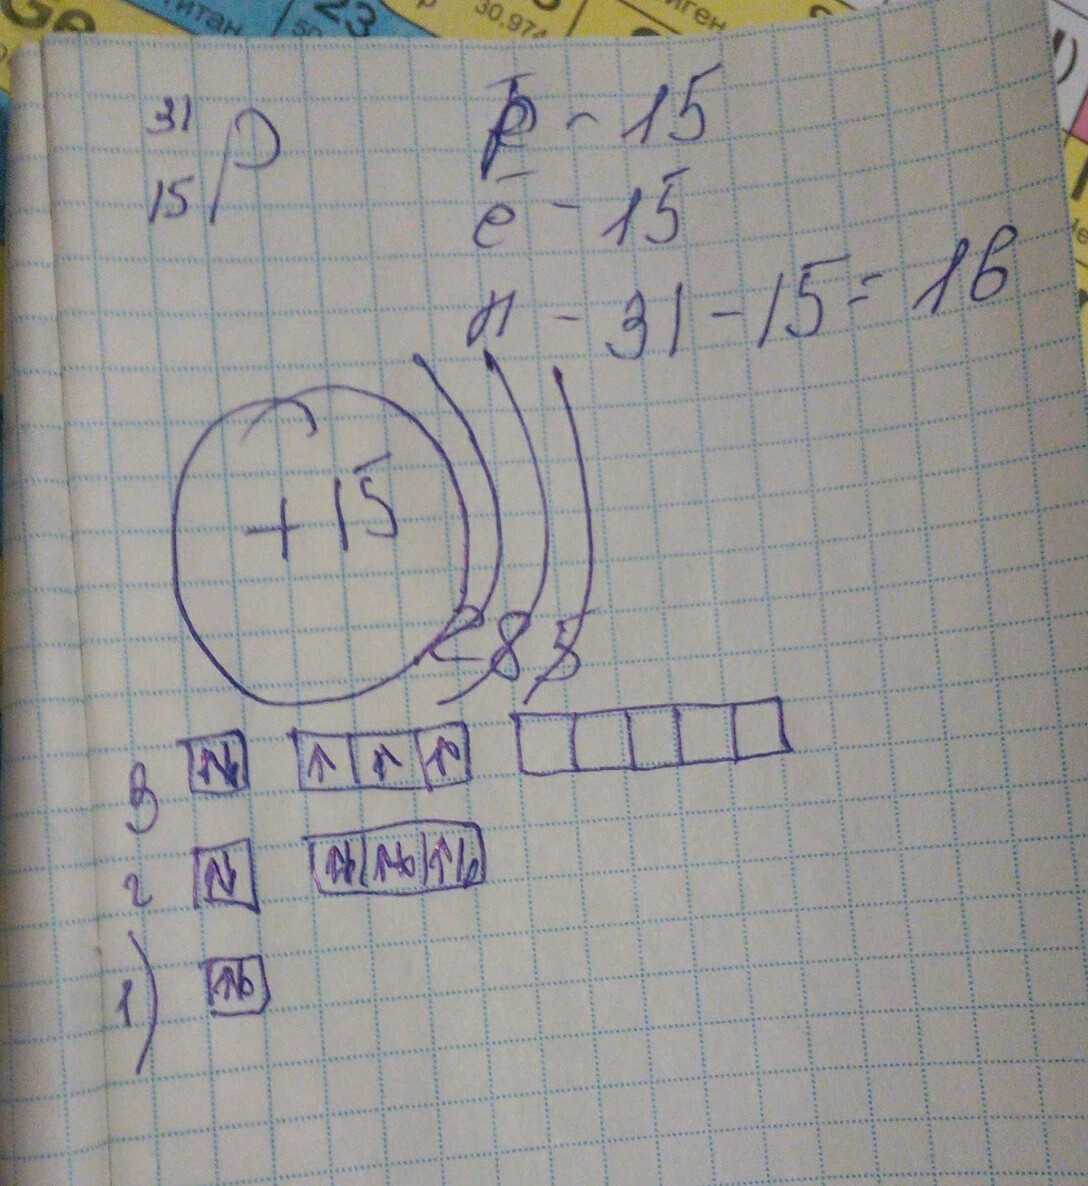 Ge
титан
23
50
30.974
иген
31
15 P
p̄ - 15
ē - 15
n - 31 - 15 = 16
+15
2 8 5
3 ↑↓ ↑ ↑ ↑
2 ↑↓ ↑↓ ↑↓ ↑↓
1) ↑↓